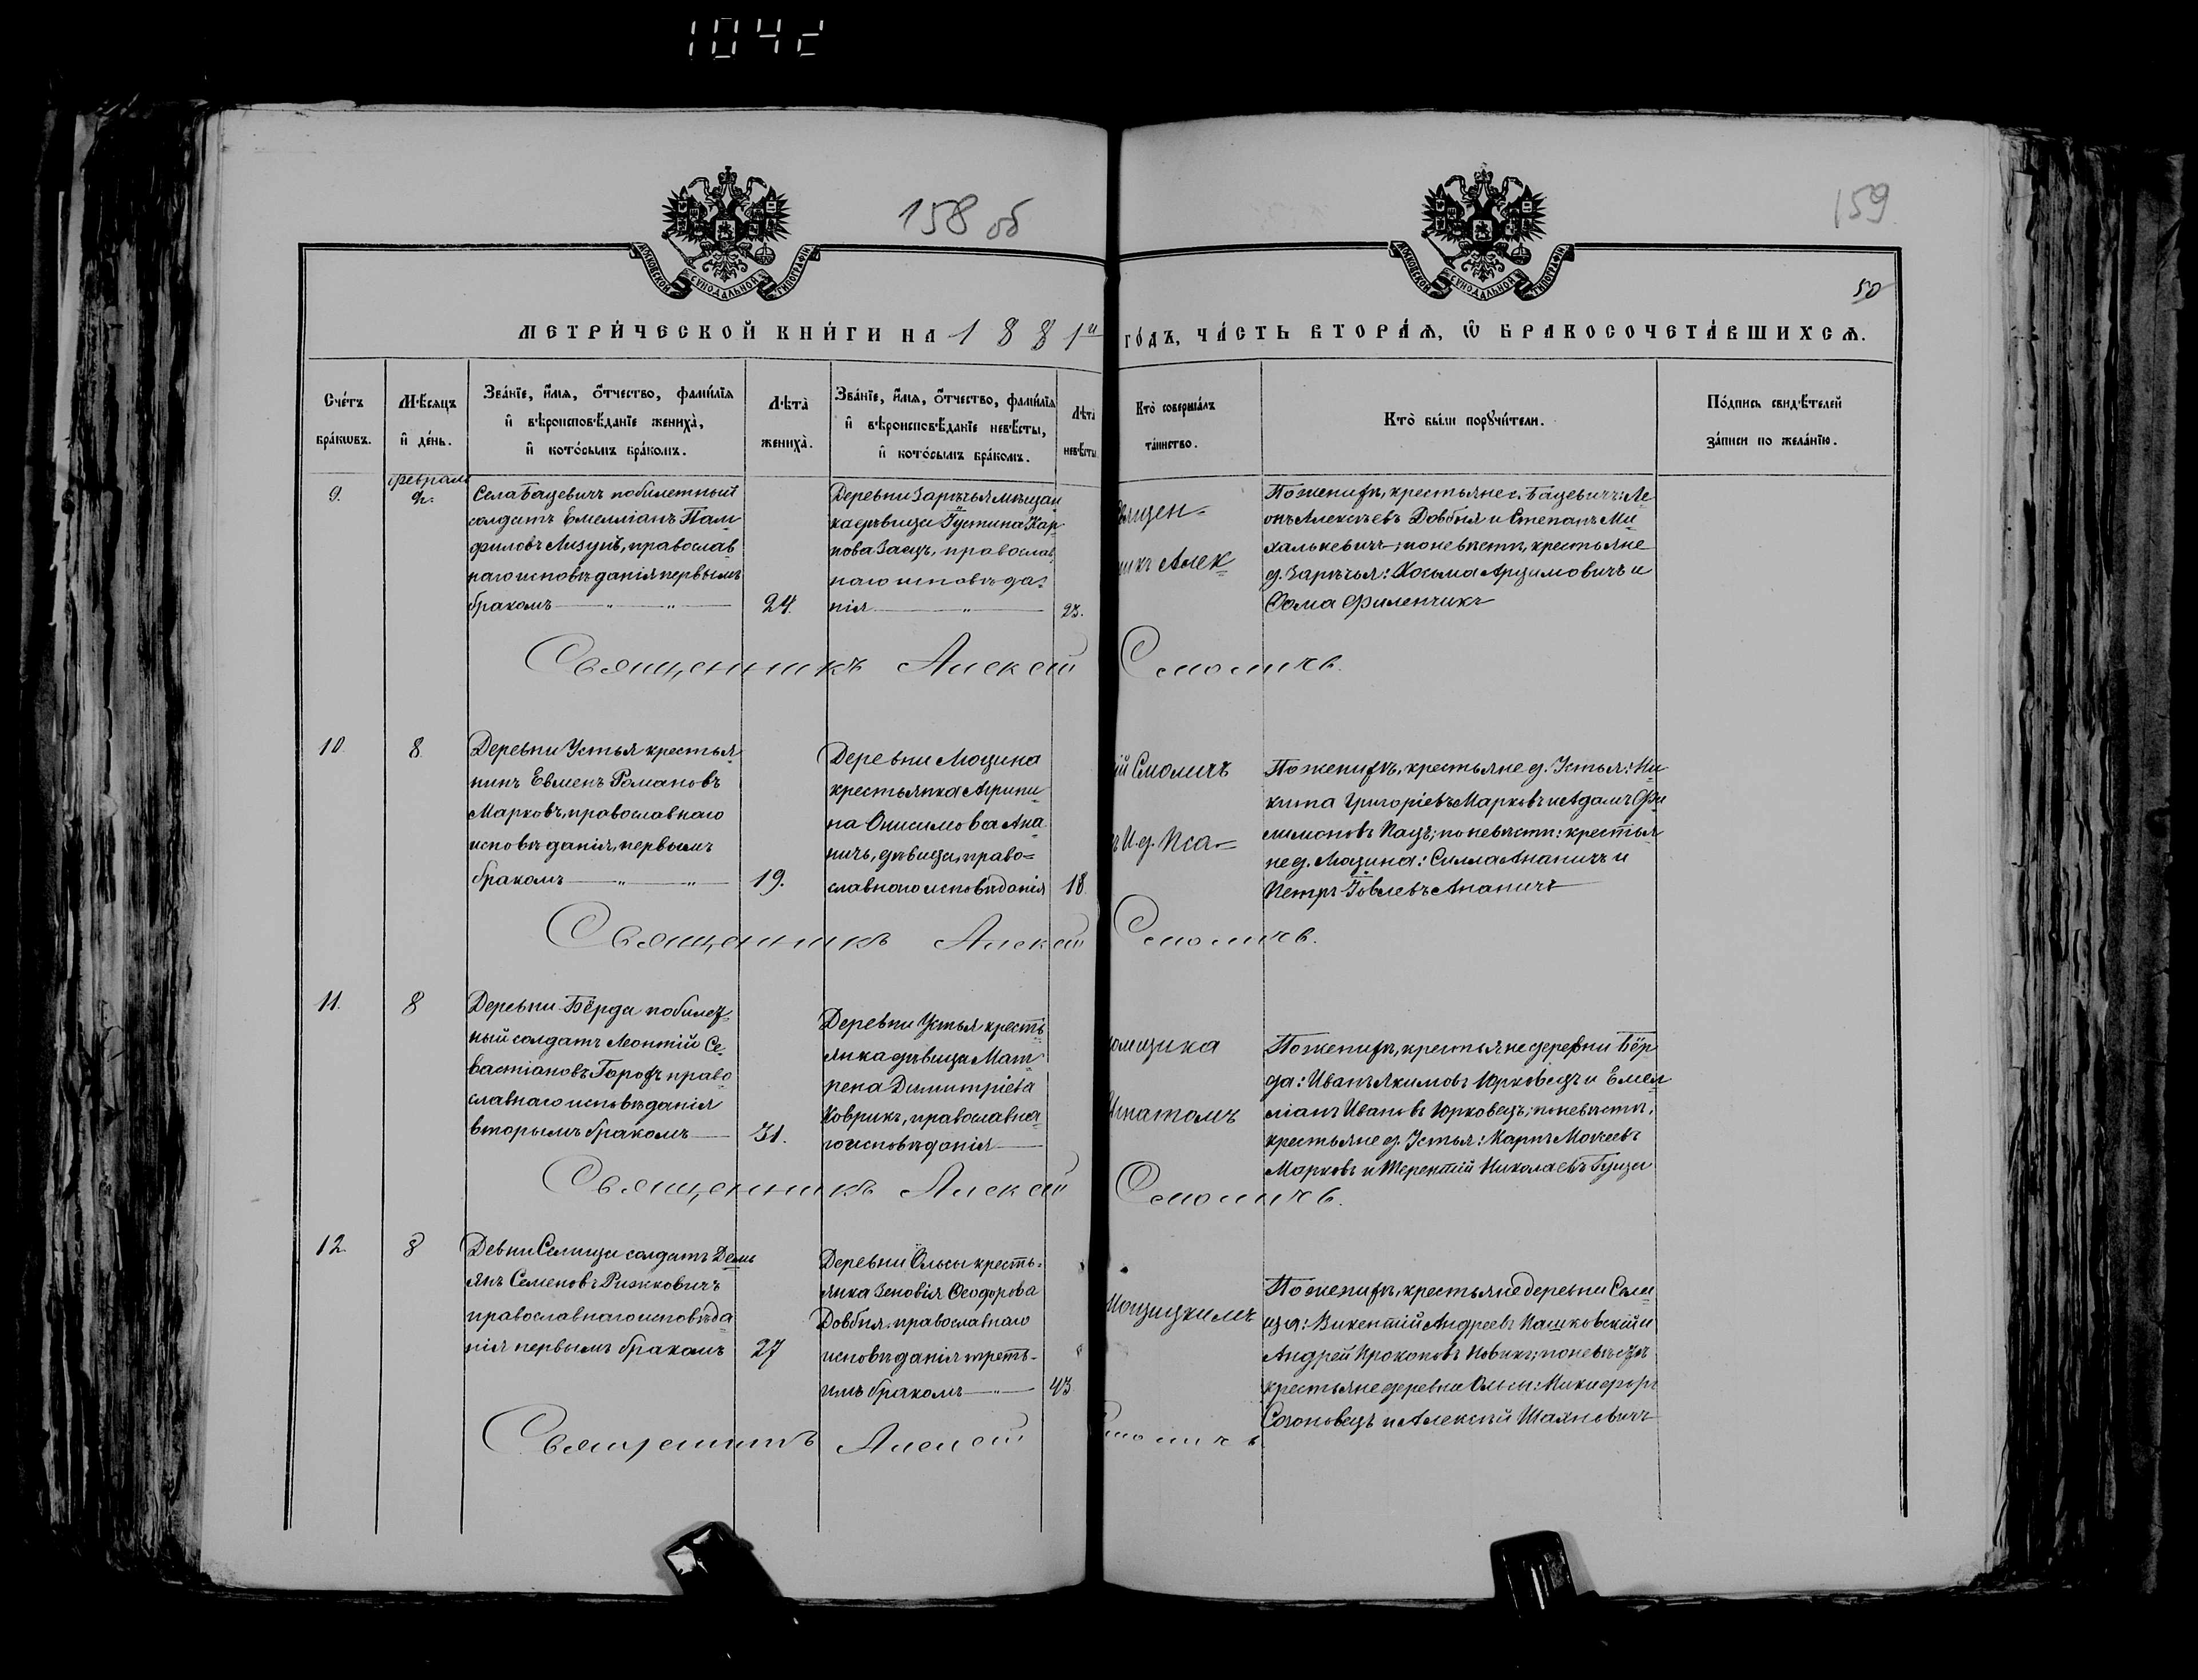 1042
158 об
159
50
МОСКОВСКОЙ СѴНОДАЛЬНОЙ ТИПОГРАФІИ
МОСКОВСКОЙ СѴНОДАЛЬНОЙ ТИПОГРАФІИ
МЕТРИ́ЧЕСКОЙ КНИ́ГИ НА 1881й ГО́ДЪ, ЧА́СТЬ ВТОРА́Ѧ, Ѽ БРАКОСОЧЕТА́ВШИХСѦ.
Сче́тъ
бра́кѡвъ.
Мѣ́сяцъ
и҆ де́нь.
Зва́нїе, и҆́мѧ, ѻ҆́тчество, фами́лїѧ
и҆ вѣроисповѣ́данїе жениха̀,
и҆ кото́рымъ бра́комъ.
Лѣ́та
жениха̀.
Зва́нїе, и҆́мѧ, ѻ҆́тчество, фами́лїѧ
и҆ вѣроисповѣ́данїе невѣ́сты,
и҆ кото́рымъ бра́комъ.
Лѣ́та
невѣ́сты.
Кто̀ соверша́лъ
та́инство.
Кто̀ бы́ли порꙋчи́тели.
По́дпись свидѣ́телей
за́писи по жела́нїю.
9.
февраль
Села Бацевичъ побилетный
солдатъ Емелліанъ Пам-
филовъ Лизунъ, православ
наго исповѣданія первымъ
бракомъ
24.
Деревни Зарѣчья мѣщан
ка дѣвица Іустина Кар-
пова Заецъ, православ
наго исповѣда-
нія
23.
Священ-
икъ Алек-
По женихѣ, крестьяне с. Бацевичъ: Ле
онъ Алексѣевъ Довбня и Степанъ Ми-
халькевичъ; по невѣстѣ, крестьяне
д. Зарѣчья: Косьма Арцимовичъ и
Ѳома Филенчикъ
Священникъ Алексій Смоличъ.
10
8.
Деревни Устья крестья-
нинъ Евменъ Романовъ
Марковъ, православнаго
исповѣданія, первымъ
бракомъ
19.
Деревни Моцина
крестьянка Агрипи-
на Онисимова Ана-
ничъ, дѣвица, право-
славнаго исповѣданія
18
ій Смоличъ
ъ И. д. Пса-
По женихѣ, крестьяне д. Устья: Ни-
кита Григоріевъ Марковъ и Адамъ Фи
лимоновъ Кацъ; по невѣстѣ: крестья
не д. Моцина: Силла Ананичъ и
Петръ Іовлевъ Ананичъ
Священникъ Алексій Смоличъ.
11.
8
Деревни Бёрда побилет-
ный солдатъ Леонтій Се-
вастіановъ Горохъ право-
славнаго исповѣданія
вторымъ бракомъ
31.
Деревни Устья кресть-
янка дѣвица Мат-
рена Димитріева
Коврикъ, православна-
го исповѣданія
омщика
Игнатомъ
По женихѣ, крестьяне деревни Бёр
да: Иванъ Якимовъ Юрковецъ и Емел
ліанъ Ивановъ Юрковецъ; по невѣстѣ,
крестьяне д. Устья: Карпъ Мокеевъ
Марковъ и Терентій Николаевъ Гуца
Священникъ Алексій Смоличъ.
12.
8
Девни Селища солдатъ Демь
янъ Семеновъ Рижковичъ
православнаго исповѣда-
нія первымъ бракомъ
27
Деревни Ольсы кресть-
янка Зеновія Ѳеодорова
Довбня, православнаго
исповѣданія треть-
имъ бракомъ
43
Мощицкимъ
По женихѣ, крестьяне деревни Сели
ща: Викентій Андреевъ Пашковскій и
Андрей Прокоповъ Новикъ; по невѣстѣ
крестьяне деревни Ольсы: Никифоръ
Сазоновецъ и Алексѣй Шахновичъ
Священникъ Алексій Смоличъ